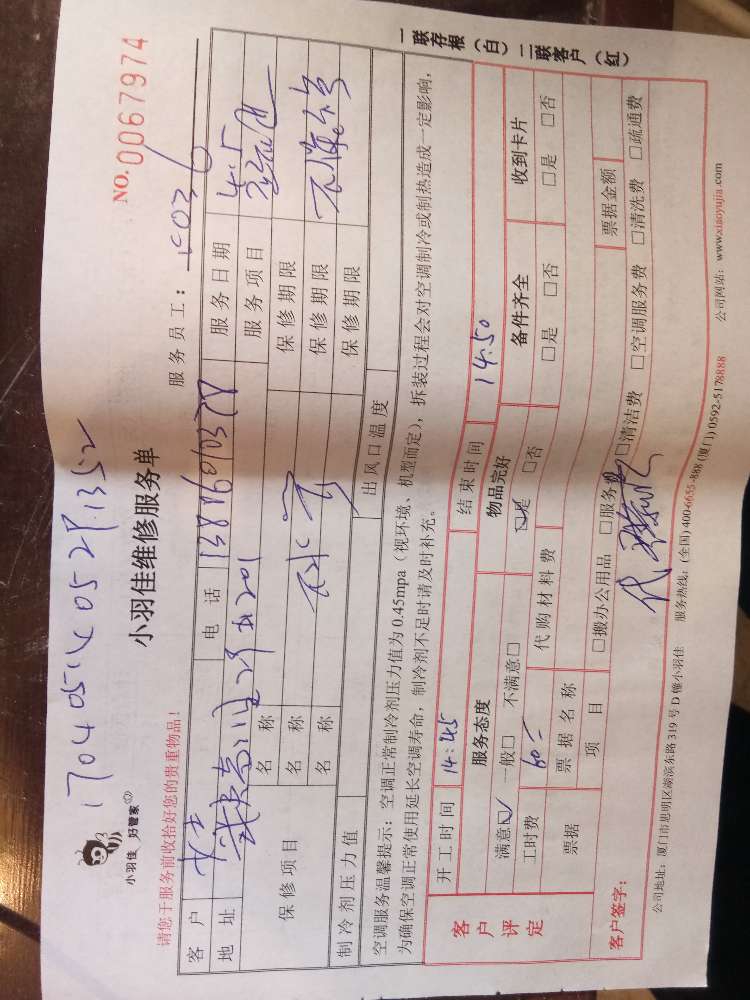 170405140529352
小羽佳 好管家
小羽佳维修服务单
NO.0067974
请您于服务前收拾好您的贵重物品！
服务员工：
客户 女士 电话 13816010378 服务日期 4.5
地址 服务项目
保修项目 名称 保修期限
名称 保修期限 不保修
名称 保修期限
制冷剂压力值 出风口温度
空调服务温馨提示：空调正常制冷剂压力值为0.45mpa（视环境、机型而定），拆装过程会对空调制冷或制热造成一定影响，
为确保空调正常使用延长空调寿命，制冷剂不足时请及时补充。
客户评定 开工时间 14:45 结束时间 14:50
服务态度 物品完好 备件齐全 收到卡片
满意☑ 一般□ 不满意□ ☑是 □否 □是 □否 □是 □否
工时费 60- 代购材料费
票据 票据名称 票据金额
项目 □搬办公用品 □服务费 □清洁费 □空调服务费 □清洗费 □疏通费
客户签字： 代
公司地址：厦门市思明区湖滨东路319号D幢小羽佳 服务热线：(全国)400-6655-888 (厦门)0592-5178888 公司网站：www.xiaoyujia.com
一联存根（白）二联客户（红）